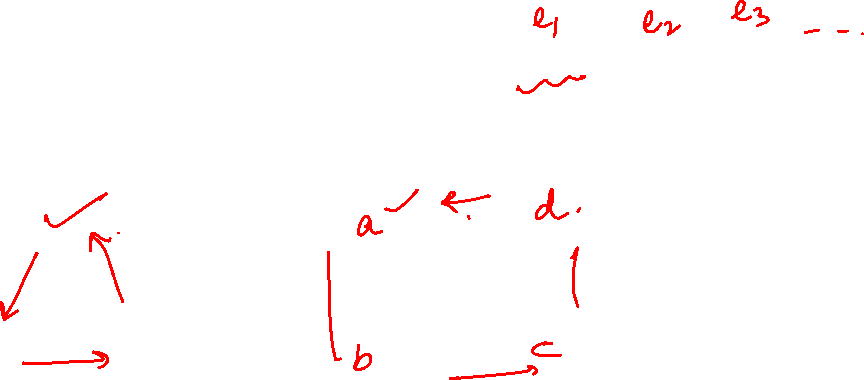 e1 e2 e3 ---
a d.
b c